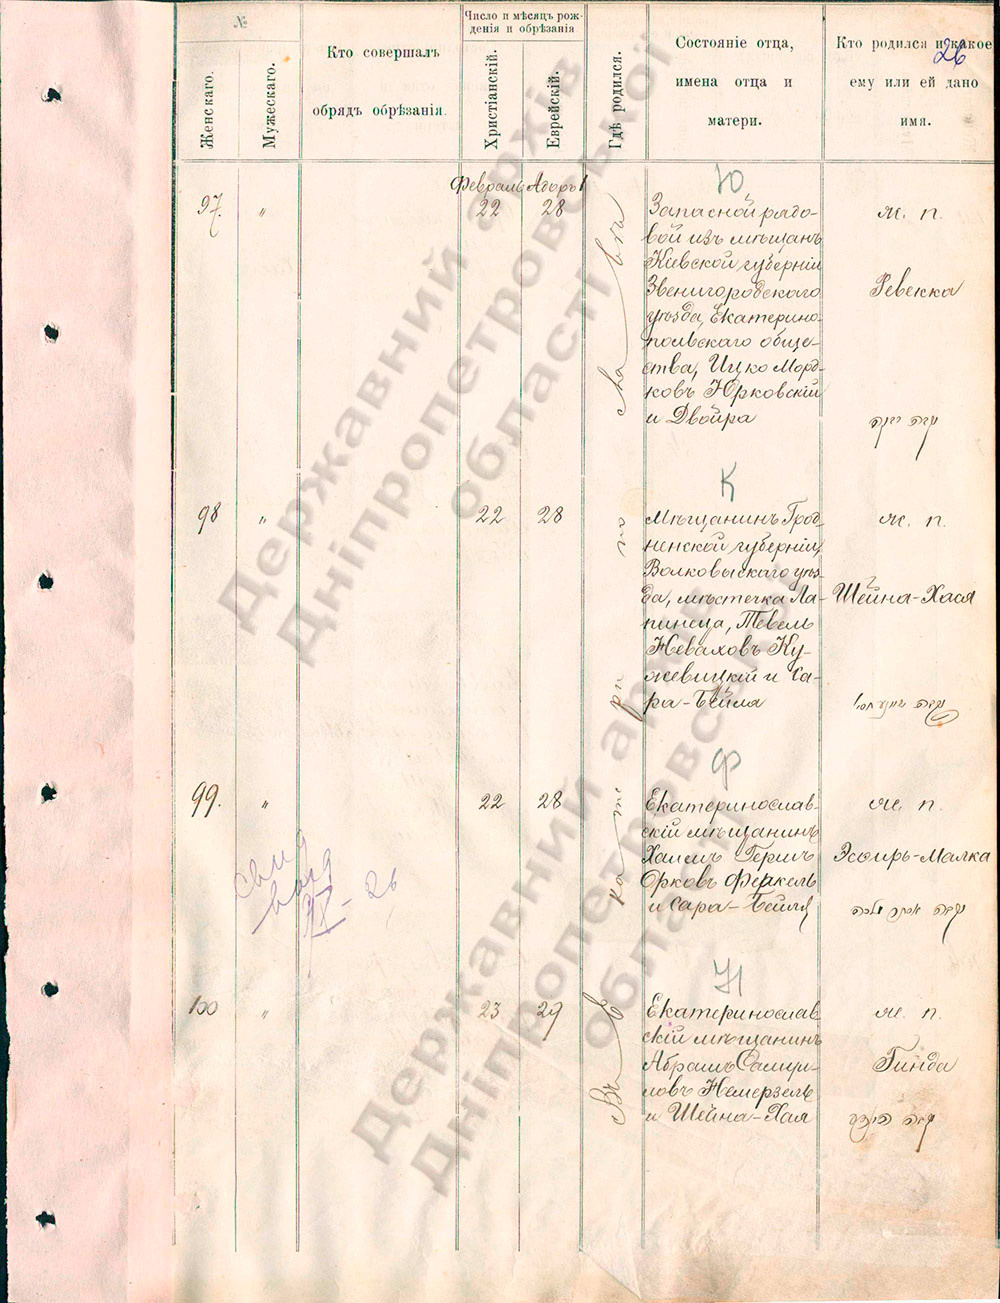 №
Женскаго.
Мужескаго.
Кто совершалъ
обрядъ обрѣзанія.
Число и мѣсяцъ рож-
денія и обрѣзанія
Христіанскій.
Еврейскій.
Гдѣ родился.
Состояніе отца,
имена отца и
матери.
Кто родился и какое
ему или ей дано
имя.
26
Февраль Адоръ 1
Ю
97. " 22 28
Запасной рядо-
вой изъ мѣщанъ
Кіевской губерніи
Звенигородскаго
уѣзда, Екатерино-
польскаго обще-
ства, Ицко Морд-
ковъ Юрковскій
и Двойра
ж. п.
Ревекка
К
98 " 22 28
Мѣщанинъ Грод-
ненской губерніи,
Волковыскаго уѣз-
да, мѣстечка Ла-
пинеца, Тевель
Неваховъ Ку-
жевицкій и Са-
ра-Бейля
ж. п.
Шейна-Хася
Ф
99. " 22 28
Екатеринослав-
скій мѣщанинъ
Хаимъ Гершъ
Орковъ Феркель
и Сара-Бейля
ж. п.
Эсѳирь-Малка
26
Н
100 " 23 29
Екатеринослав-
скій мѣщанинъ
Абрамъ Самуи-
ловъ Немерзель
и Шейна-Хая
ж. п.
Гинда
Въ
Державний архів
Дніпропетровської
області
Державний архів
Дніпропетровської
області